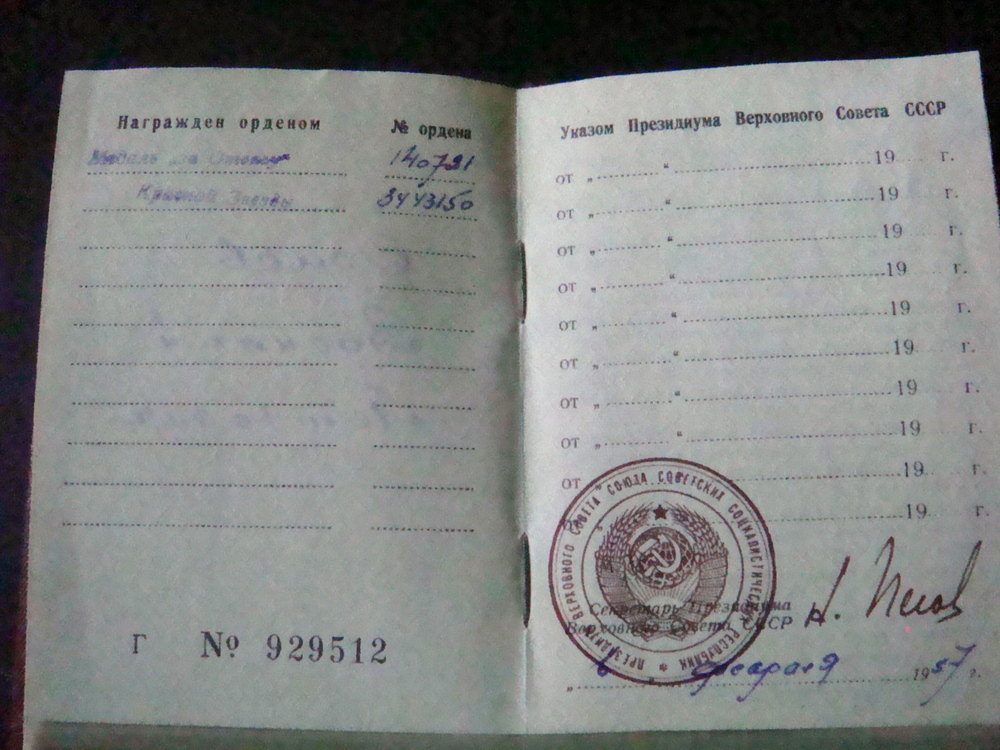 Награжден орденом № ордена
Медаль „за Отвагу" 140791
Красной Звезды 3443150
Г № 929512
Указом Президиума Верховного Совета СССР
от „ “ 19 г.
от „ “ 19 г.
от „ “ 19 г.
от „ “ 19 г.
от „ “ 19 г.
от „ “ 19 г.
от „ “ 19 г.
от „ “ 19 г.
от 19 г.
19 г.
ПРЕЗИДИУМ ВЕРХОВНОГО СОВЕТА СОЮЗА СОВЕТСКИХ СОЦИАЛИСТИЧЕСКИХ РЕСПУБЛИК
Секретарь Президиума
Верховного Совета СССР
„6“ февраля 1957 г.